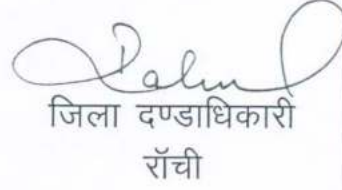 जिला दण्डाधिकारी
रॉची